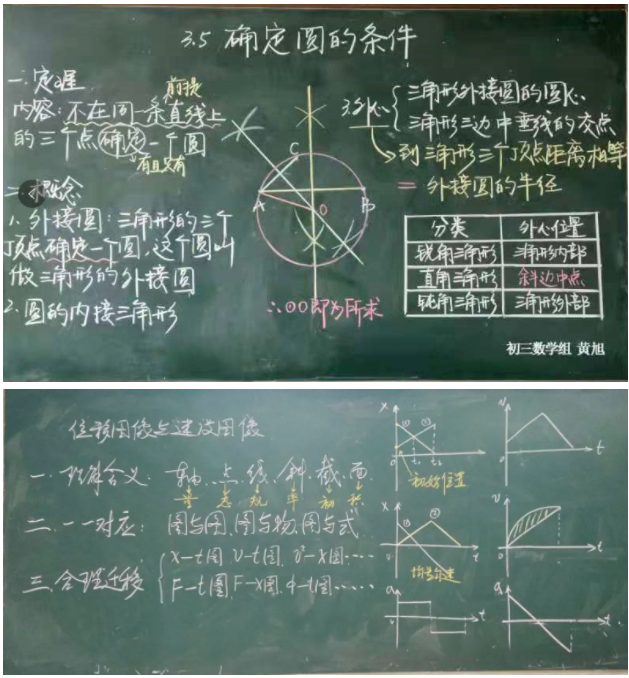 3.5 确定圆的条件
一.定理
前提
内容:不在同一条直线上
的三个点确定一个圆
有且只有
二.概念
1.外接圆:三角形的三个
顶点确定一个圆,这个圆叫
做三角形的外接圆
2.圆的内接三角形
C
A
B
O
∴⊙O即为所求
3.外心
三角形外接圆的圆心
三角形三边中垂线的交点
到三角形三个顶点距离相等
=外接圆的半径
分类 外心位置
锐角三角形 三角形内部
直角三角形 斜边中点
钝角三角形 三角形外部
初三数学组 黄旭
位移图像与速度图像
一.理解含义: 轴、点、线、斜、截、面
率
二.一一对应: 图与图、图与物、图与式
三.合理迁移
x-t图、v-t图、v²-x图……
F-t图、F-x图、φ-t图……
x
①
②
t₁
t₂
初始位置
v
t
x
①
②
t
v
t
a
t
a
t